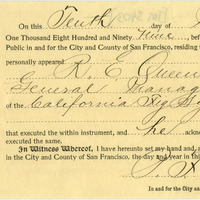 On this Tenth day of
One Thousand Eight Hundred and Ninety Nine, before
Public in and for the City and County of San Francisco, residing
personally appeared
R. E. Queen
General Manag
of the California Fig Sy
that executed the within instrument, and he ackn
executed the same.
In Witness Whereof, I have hereunto set my hand and
in the City and County of San Francisco, the day and
In and for the City and